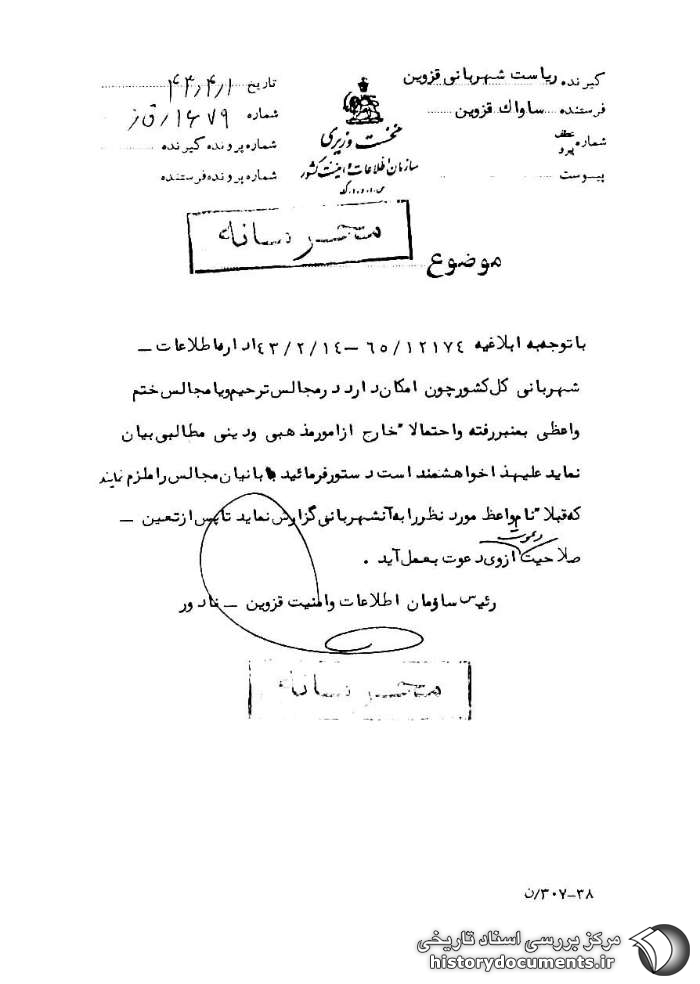 گیرنده ریاست شهربانی قزوین
فرستنده ساواک قزوین
شماره عطف پیرو
پیوست
نخست وزیری
سازمان اطلاعات و امنیت کشور
س.ا.و.ا.ک
تاریخ ۴۳٫۴٫۱
شماره ۱۶۷۹ر ق ز
شماره پرونده گیرنده
شماره پرونده فرستنده
محرمانه
موضوع
با توجه به ابلاغیه ۱۲۱۷۴/۶۵ – ۴۳/۲/۱۴ اداره اطلاعات –
شهربانی کل کشور چون امکان دارد در مجالس ترحیم و یا مجالس ختم
واعظی بمنبر رفته و احتمالا" خارج از امور مذهبی و دینی مطالبی بیان
نماید علیهذا خواهشمند است دستور فرمائید بانیان مجالس را ملزم نمایند
که قبلا" نام واعظ مورد نظر را به آنشهربانی گزارش نماید تا پس از تعین –
صلاحیت دعوت از وی دعوت بعمل آید .
رئیس سازمان اطلاعات و امنیت قزوین – نادور
محرمانه
۳۸–۳۰۷/ن
مرکز بررسی اسناد تاریخی
historydocuments.ir